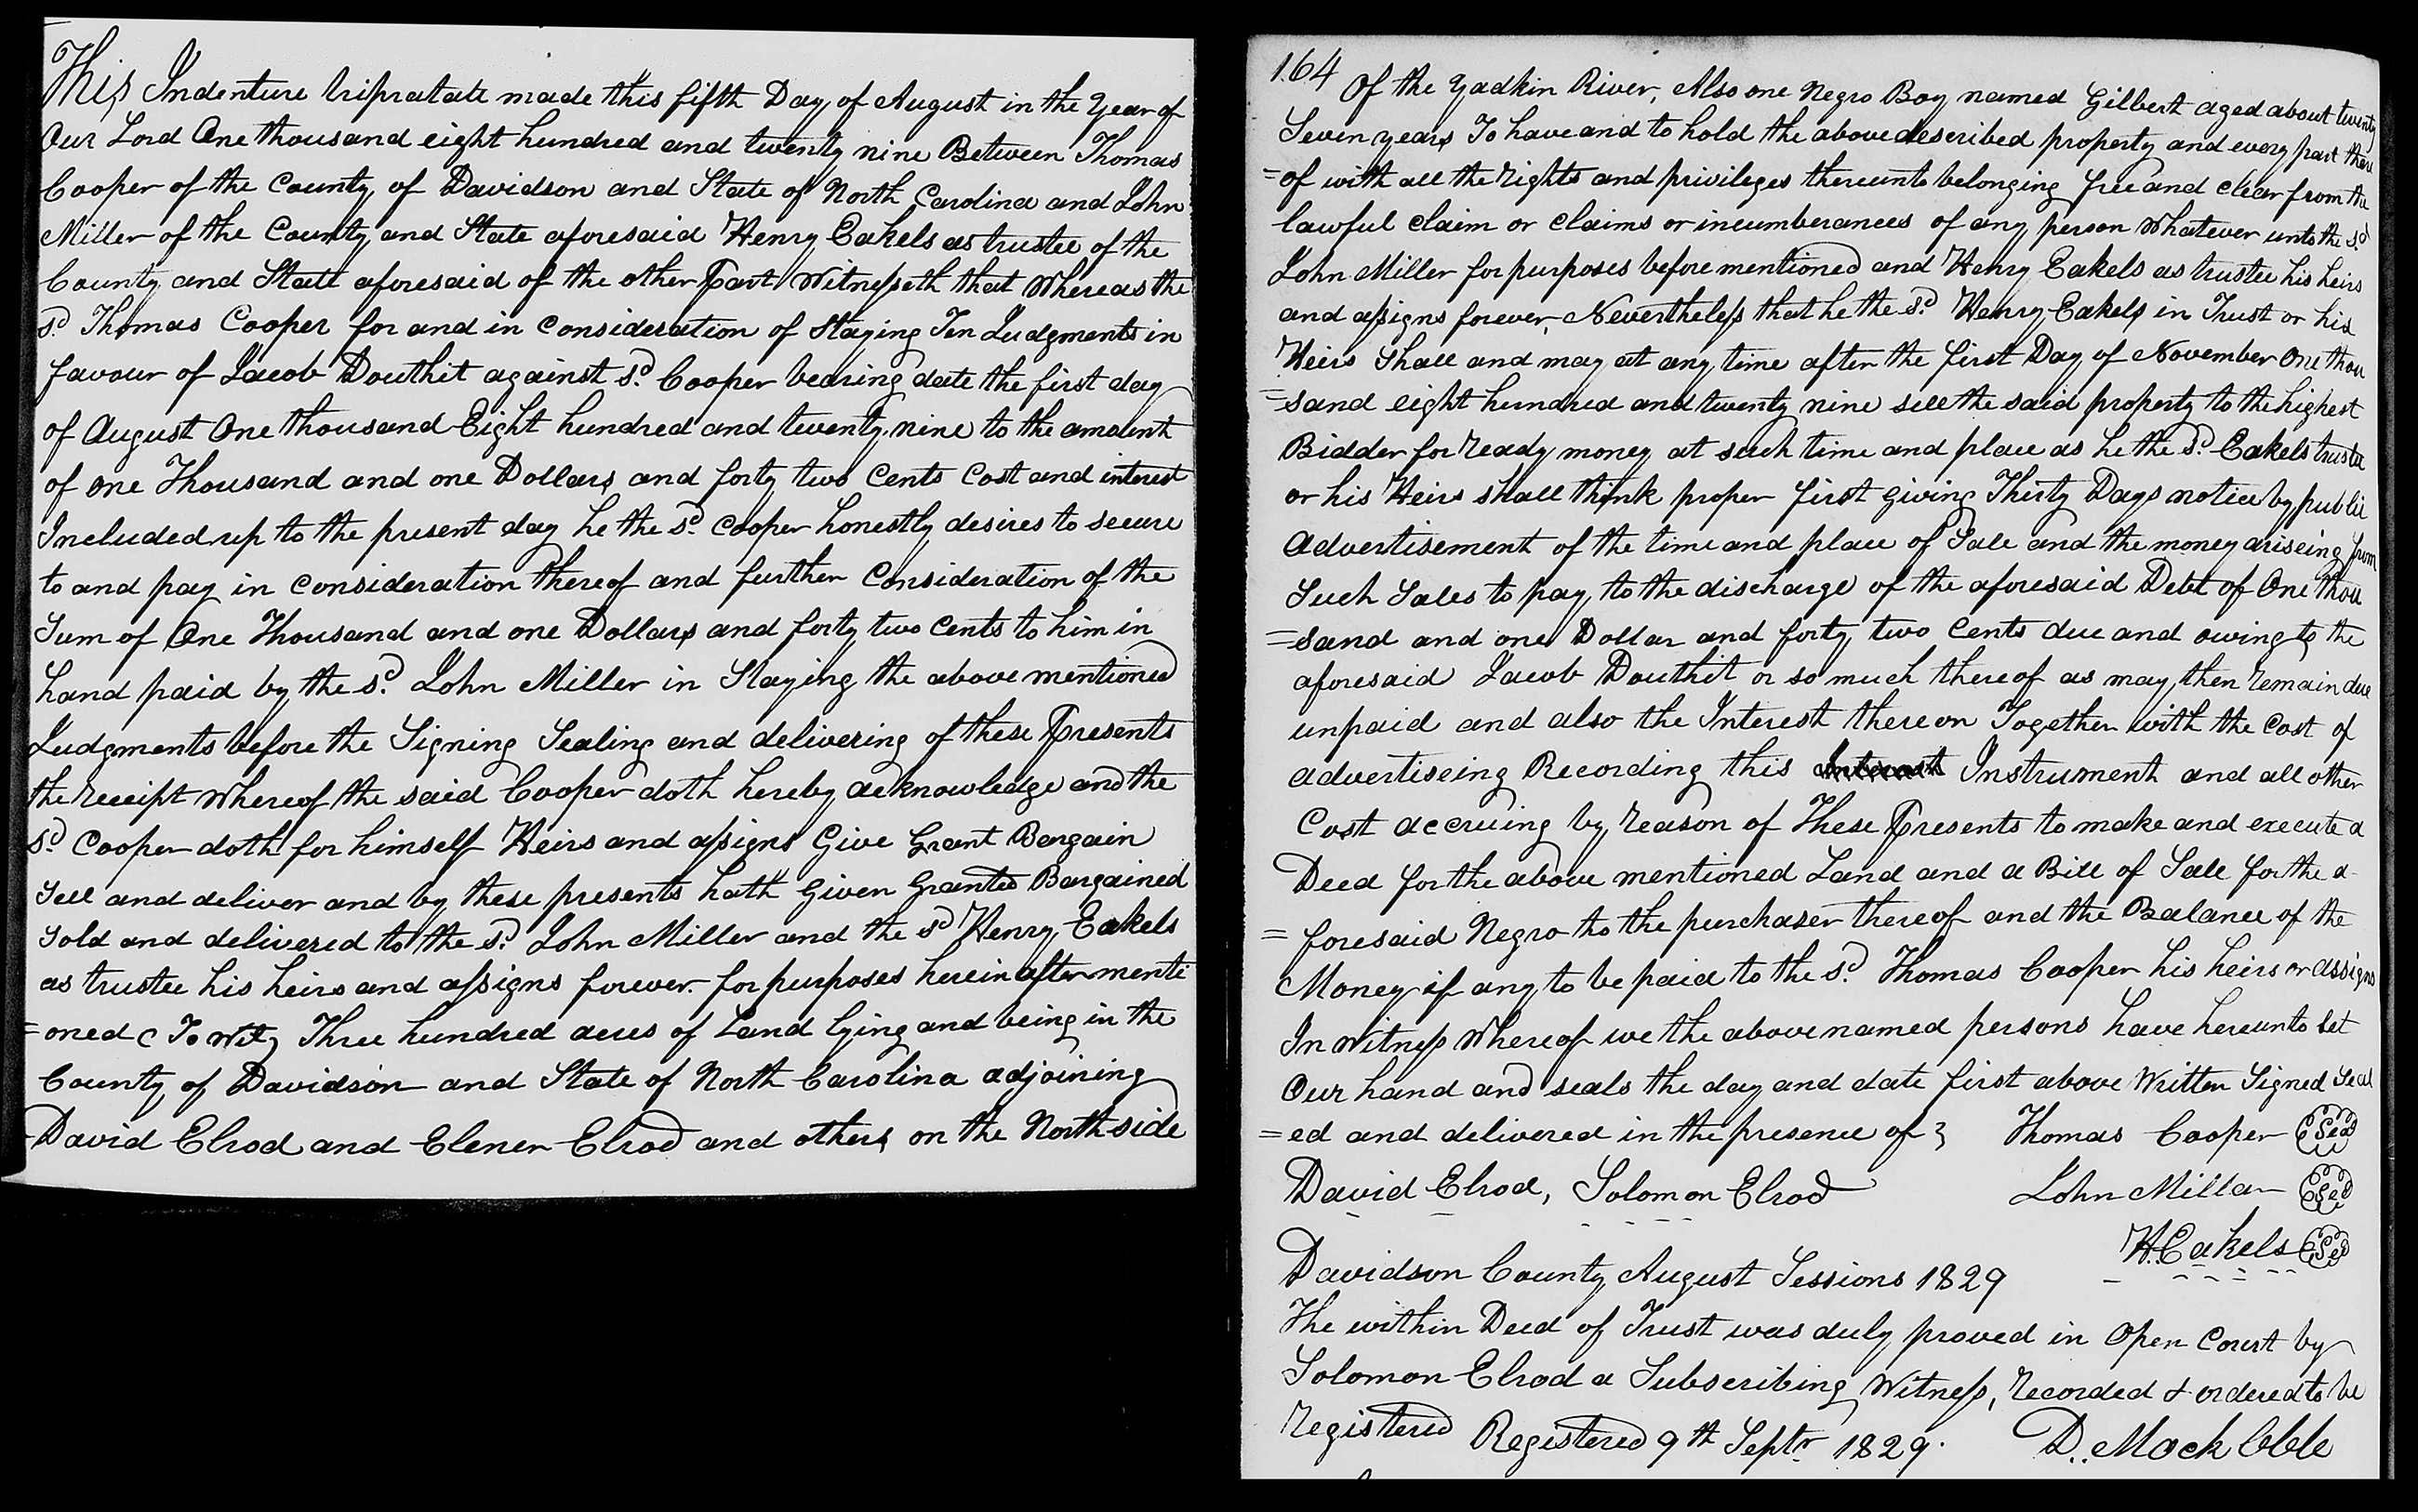 This Indenture tripratate made this fifth Day of August in the Year of
Our Lord One thousand eight hundred and twenty nine Between Thomas
Cooper of the County of Davidson and State of North Carolina and John
Miller of the County and State aforesaid Henry Eakels as trustee of the
County and State aforesaid of the other Part Witnesseth that Whereas the
sd Thomas Cooper for and in Consideration of Staying Ten Judgments in
favour of Jacob Douthit against sd. Cooper bearing date the first day
of August One thousand Eight hundred and twenty nine to the amount
of one Thousand and one Dollars and forty two Cents Cost and interest
Included up to the present day he the sd. Cooper honestly desires to secure
to and pay in Consideration thereof and further Consideration of the
Sum of One Thousand and one Dollars and forty two Cents to him in
hand paid by the sd. John Miller in Staying the above mentioned
Judgments before the Signing Sealing and delivering of these Presents
the receipt Whereof the said Cooper doth hereby acknowledge and the
sd Cooper doth for himself Heirs and assigns Give Grant Bargain
Sell and deliver and by these presents hath Given Granted Bargained
Sold and delivered to the sd. John Miller and the sd Henry Eakels
as trustee his heirs and assigns forever for purposes herein after menti
=oned ( To Wit) Three hundred acres of Land lying and being in the
County of Davidson and State of North Carolina adjoining
David Elrod and Elener Elrod and others on the North side
164
Of the Yadkin River, Also one Negro Boy named Gilbert aged about twenty
Seven years To have and to hold the above described property and every part there
=of with all the rights and privileges thereunto belonging free and clear from the
lawful claim or claims or incumberances of any person Whatever unto the sd
John Miller for purposes before mentioned and Henry Eakels as trustee his heirs
and assigns forever, Nevertheless that he the sd. Henry Eakels in Trust or his
Heirs Shall and may at any time after the first Day of November One thou
=sand eight hundred and twenty nine sell the said property to the highest
Bidder for ready money at such time and place as he the sd. Eakels trustee
or his Heirs shall think proper first giving Thirty Days notice by public
Advertisement of the time and place of Sale and the money ariseing from
Such Sales to pay to the discharge of the aforesaid Debt of One thou
=sand and one Dollar and forty two Cents due and owing to the
aforesaid Jacob Douthit or so much thereof as may then remain due
unpaid and also the Interest thereon Together with the Cost of
advertiseing Recording this Interest Instrument and all other
Cost accruing by reason of These Presents to make and execute a
Deed for the above mentioned Land and a Bill of Sale for the a-
=foresaid Negro to the purchaser thereof and the Balance of the
Money if any to be paid to the sd. Thomas Cooper his heirs or assigns
In Witness Whereof we the above named persons have hereunto set
Our hand and seals the day and date first above Written Signed Seal
=ed and delivered in the presence of } Thomas Cooper Seal
David Elrod, Solomon Elrod John Miller Seal
H. Eakels Seal
Davidson County August Sessions 1829
The within Deed of Trust was duly proved in Open Court by
Solomon Elrod a Subscribing Witness, recorded & ordered to be
registered Registered 9th Septr 1829. D. Mock Clk